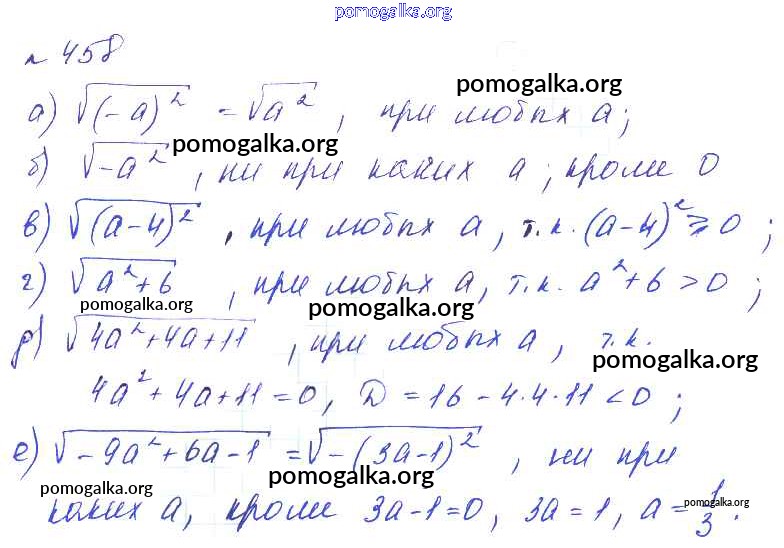 pomogalka.org
№ 458
pomogalka.org
а) √(-a)² = √a², при любых a;
pomogalka.org
б) √-a², ни при каких a; кроме 0
в) √(a-4)², при любых a, т.к. (a-4)² ≥ 0;
г) √a²+6, при любых a, т.к. a²+6 > 0;
pomogalka.org pomogalka.org
д) √4a²+4a+11, при любых a, т.к.
pomogalka.org
4a²+4a+11=0, D=16-4·4·11<0;
е) √-9a²+6a-1 = √-(3a-1)², ни при
pomogalka.org pomogalka.org
каких a, кроме 3a-1=0, 3a=1, a=1/3.
pomogalka.org